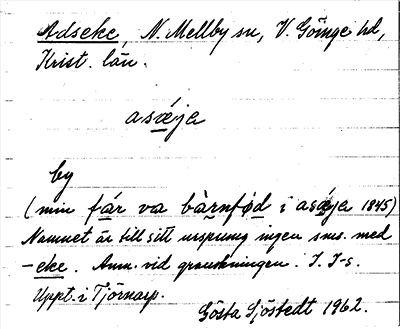 Adseke, N. Mellby sn, V. Göinge hd,
Krist. län.
asǽja
by
(min fár va bàrnfǿd i asǽja 1845)
Namnet är till sitt ursprung ingen sms. med
-eke. Anm. vid granskningen. I. I-s.
Uppt. i Tjörnarp.
Gösta Sjöstedt 1962.